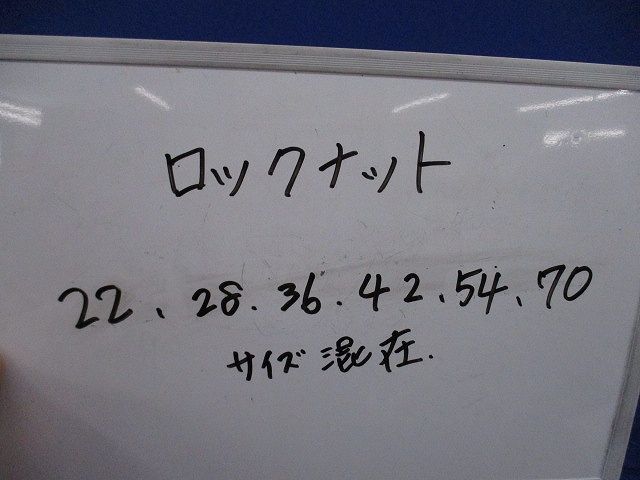 ロックナット
22、28.36.42、54、70
サイズ混在.